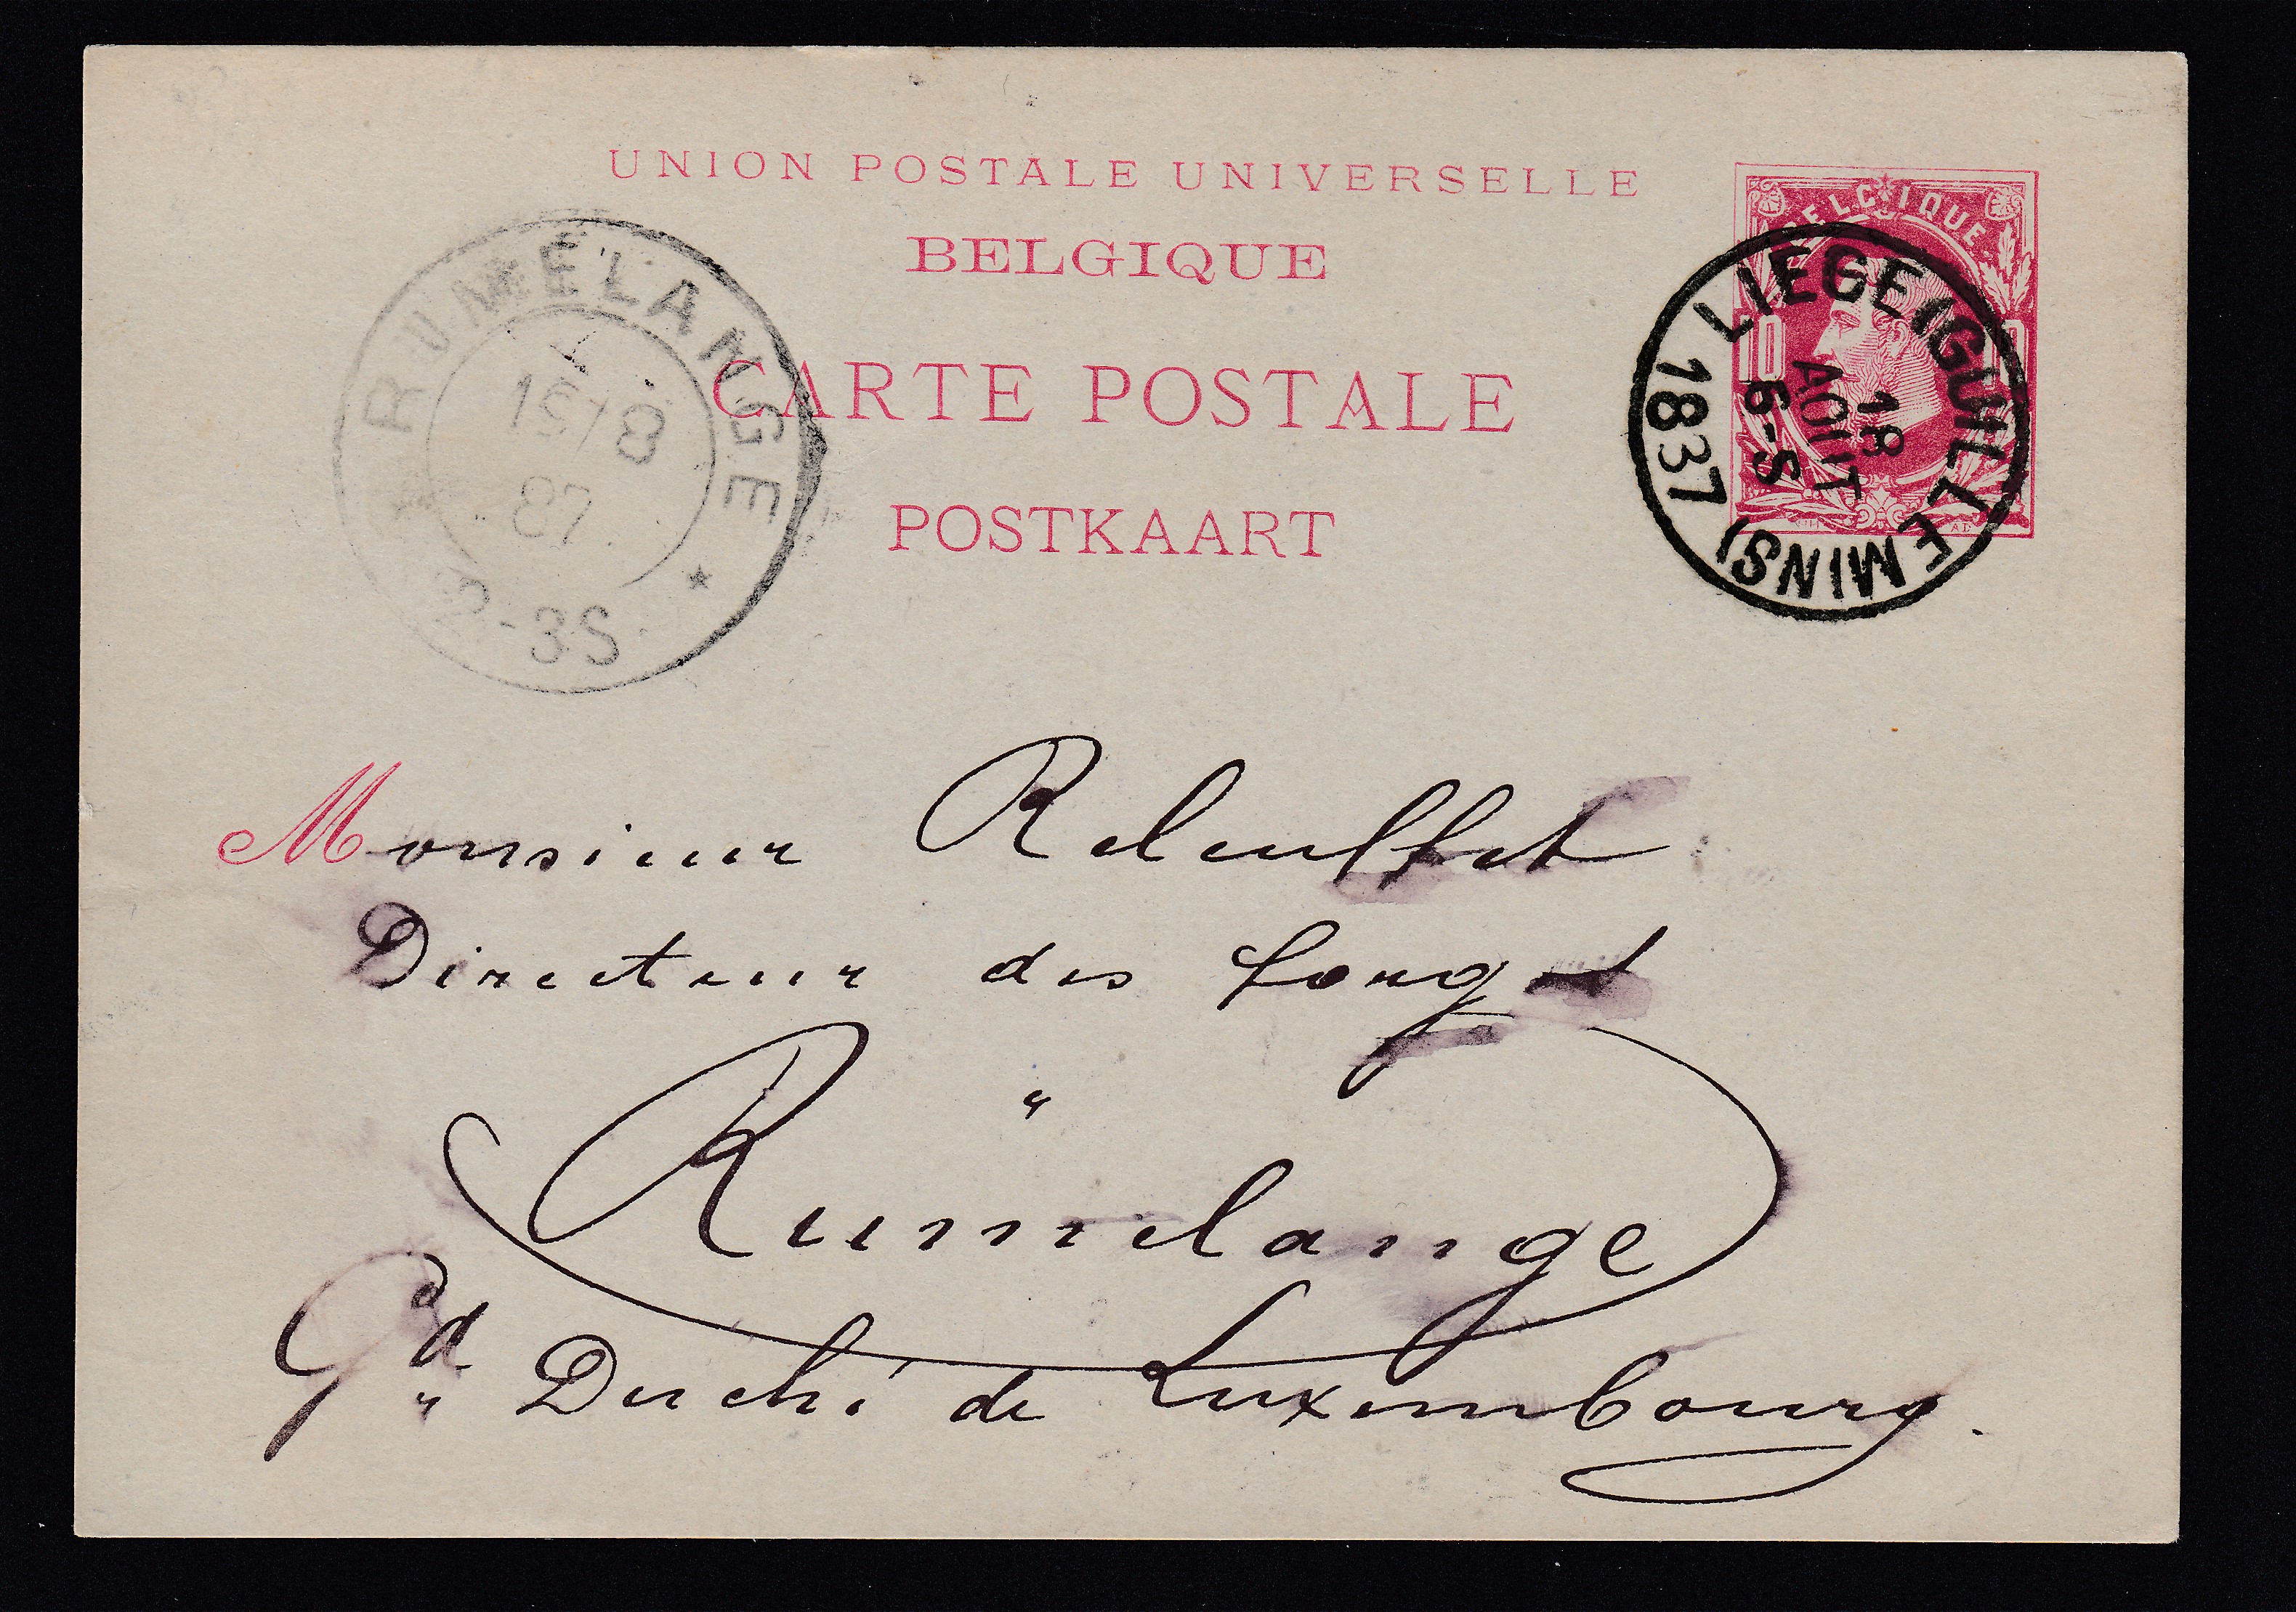 UNION POSTALE UNIVERSELLE
BELGIQUE
CARTE POSTALE
POSTKAART
BELGIQUE
10
LIEGE (GUILLEMINS)
18
AOUT
6-S
1837
RUMELANGE
8
87
2-3S
Monsieur
Directeur des
Rumelange
Gd Duché de Luxembourg.